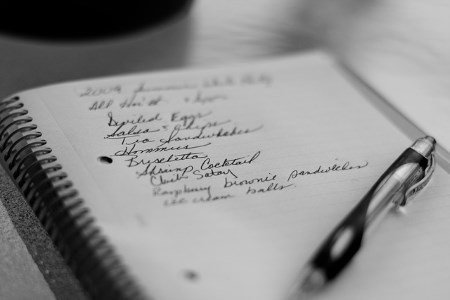 2009 Summer
All
Deviled Eggs
Salsa & Chips
Tea Sandwiches
Hommus
Brischetta
Shrimp Cocktail
Chick Satay
Raspberry brownie sandwiches
ice cream balls